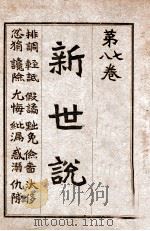 第七八卷
新世說
排調 輕詆 假譎 黜免 儉嗇 汰侈
忿狷 讒險 尤悔 紕漏 惑溺 仇隙